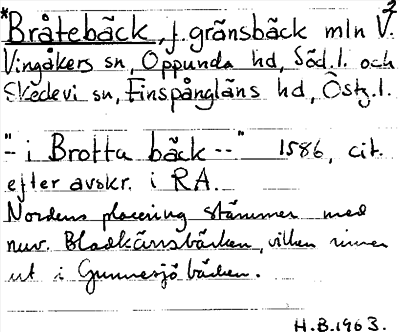 *Bråtebäck, f. gränsbäck mln V. 2
Vingåkers sn, Oppunda hd, Söd.l. och
Skedevi sn, Finspångläns hd, Östg.l.
"- i Brotta bäck --" 1586, cit.
efter avskr. i RA.
Nordens placering stämmer med
nuv. Bladkärrsbäcken, vilken rinner
ut i Gunnersjöbäcken.
H.B. 1963.